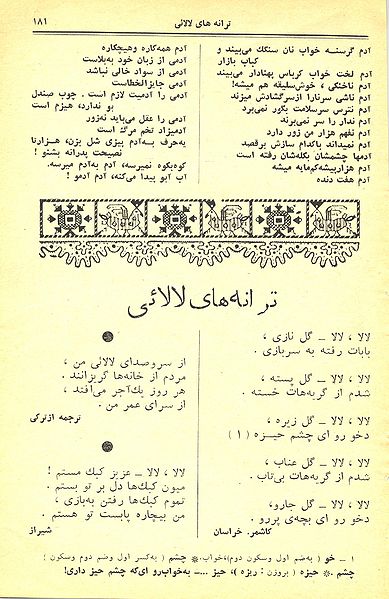 ترانه های لالائی
۱۸۱
آدم گرسنه خواب نان سنگک می‌بیند و
کباب بازار
آدم لخت خواب کرباس پهنادار می‌بیند
آدم ناخنکی ، خوش‌سلیقه هم میشه!
آدم ناشی سرنارا ازسرگشادش میزند
آدم نترس سرسلامت بگور نمی‌برد
آدم ندار را سر نمی‌برند
آدم نفهم هزار من زور دارد
آدم نمیداند باکدام سازش برقصد
آدمها چشمشان بکله‌شان رفته است
آدم هزارپیشه‌کم‌مایه میشه
آدم هفت دنده
آدم همه‌کاره وهیچکاره
آدمی از زبان خود به‌بلاست
آدمی از سواد خالی نباشد
آدمی جایزالخطاست
آدمی را آدمیت لازم است . چوب صندل
بو ندارد، هیزم است
آدمی را عقل می‌باید نه‌زور
آدمیزاد تخم مرگ است
یه‌حرف به‌آدم بیزی شل بزن، هزارتا
نصیحت پدرانه بشنو !
کوه‌بکوه نمیرسه، آدم به‌آدم میرسه.
آب آبو پیدا می‌کنه، آدم آدمو !
ترانه‌های لالائی
لالا ، لالا ــ گل نازی ،
بابات رفته به سربازی .
لالا ، لالا ــ گل پسته ،
شدم از گریه‌هات خسته .
لالا ، لالا ــ گل زیره ،
دخو رو ای چشم حیـزه (۱)
لالا ، لالا ــ گل عناب ،
شدم از گریه‌هات بی‌تاب .
لالا ، لالا ــ گل جارو،
دخو رو ای بچه‌ی پررو .
کاشمر. خراسان
از سروصدای لالائی من ،
مردم از خانه‌ها گریزانند .
هر روز یک‌آجر می‌افتد ،
از سرای عمر من .
ترجمه ازترکی
لالا ، لالا ــ عزیز کبک مستم !
میون کبک‌ها دل بر تو بستم .
تموم کبک‌ها رفتن به‌بازی ،
من بیچاره پابست تو هستم .
شیراز
۱ ــ خو ( به‌ضم اول وسکون دوم)،خواب.* چشم ( به‌کسر اول وضم دوم وسکون )
چشم .* حیزه (بروزن : ریزه )، حیز ...ــ به‌خواب‌رو ای‌که چشم حیز داری!